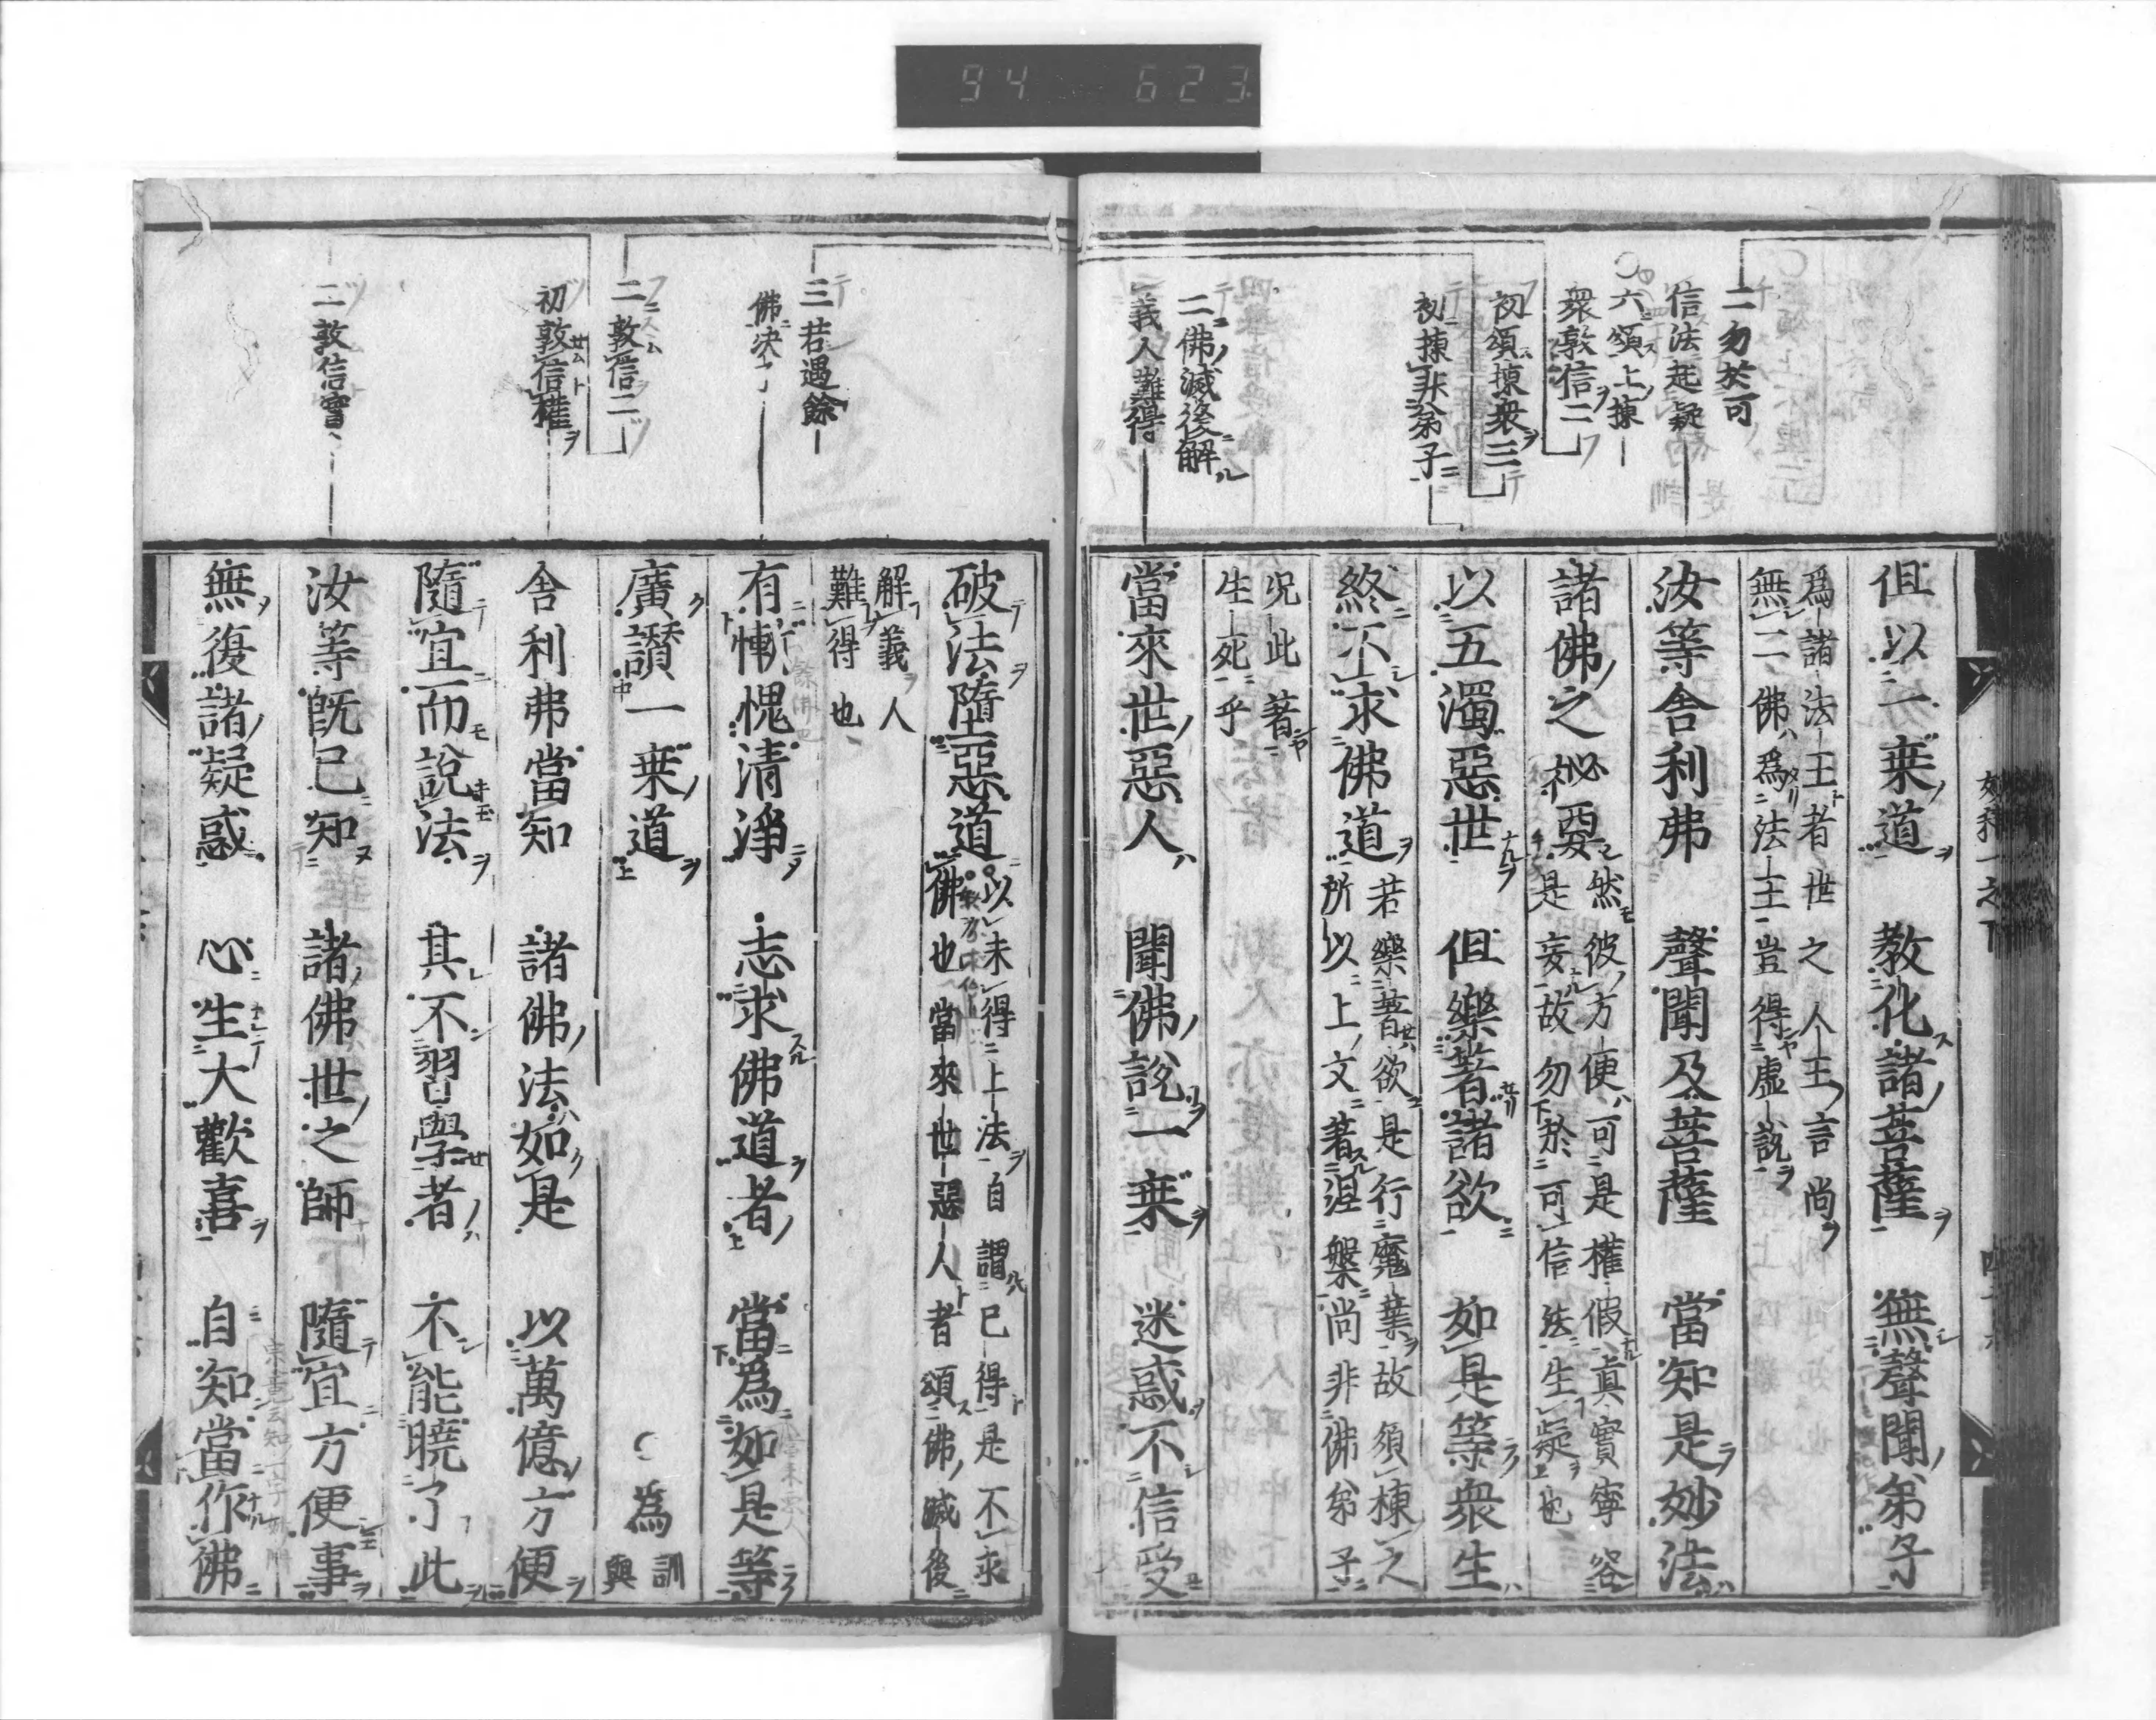 94 623
二勿於可
信法起疑
六頌上揀
衆敦信二
初頌揀衆三
初揀非弟子
二佛滅後解
義人難得
但以一乗道 教化諸菩薩 無聲聞弟子
爲諸法王者世之人王言尚
無二佛爲法王豈得虛説
汝等舎利弗 聲聞及菩薩 當知是妙法
諸佛之祕要
然彼方便可是權假真實寧容
是妄故勿於可信法生疑也
以五濁惡世 但樂著諸欲 如是等衆生
終不求佛道
若樂著欲是行魔業故須揀之
所以上文著涅槃尚非佛弟子
况此著
生死乎
當來世惡人 聞佛說一乗 迷惑不信受
三若遇餘
佛決了
二敦信二
初敦信權
二敦信實
破法墮惡道
以未得上法自謂已得是不求
佛也當來世惡人者頌佛滅後
解義人
難得也
有慚愧清淨 志求佛道者 當爲如是等
廣讃一乗道
爲
訓
與
舎利弗當知 諸佛法如是 以萬億方便
隨宜而說法 其不習學者 不能曉了此
汝等既已知 諸佛世之師 隨宜方便事
無復諸疑惑 心生大歡喜 自知當作佛